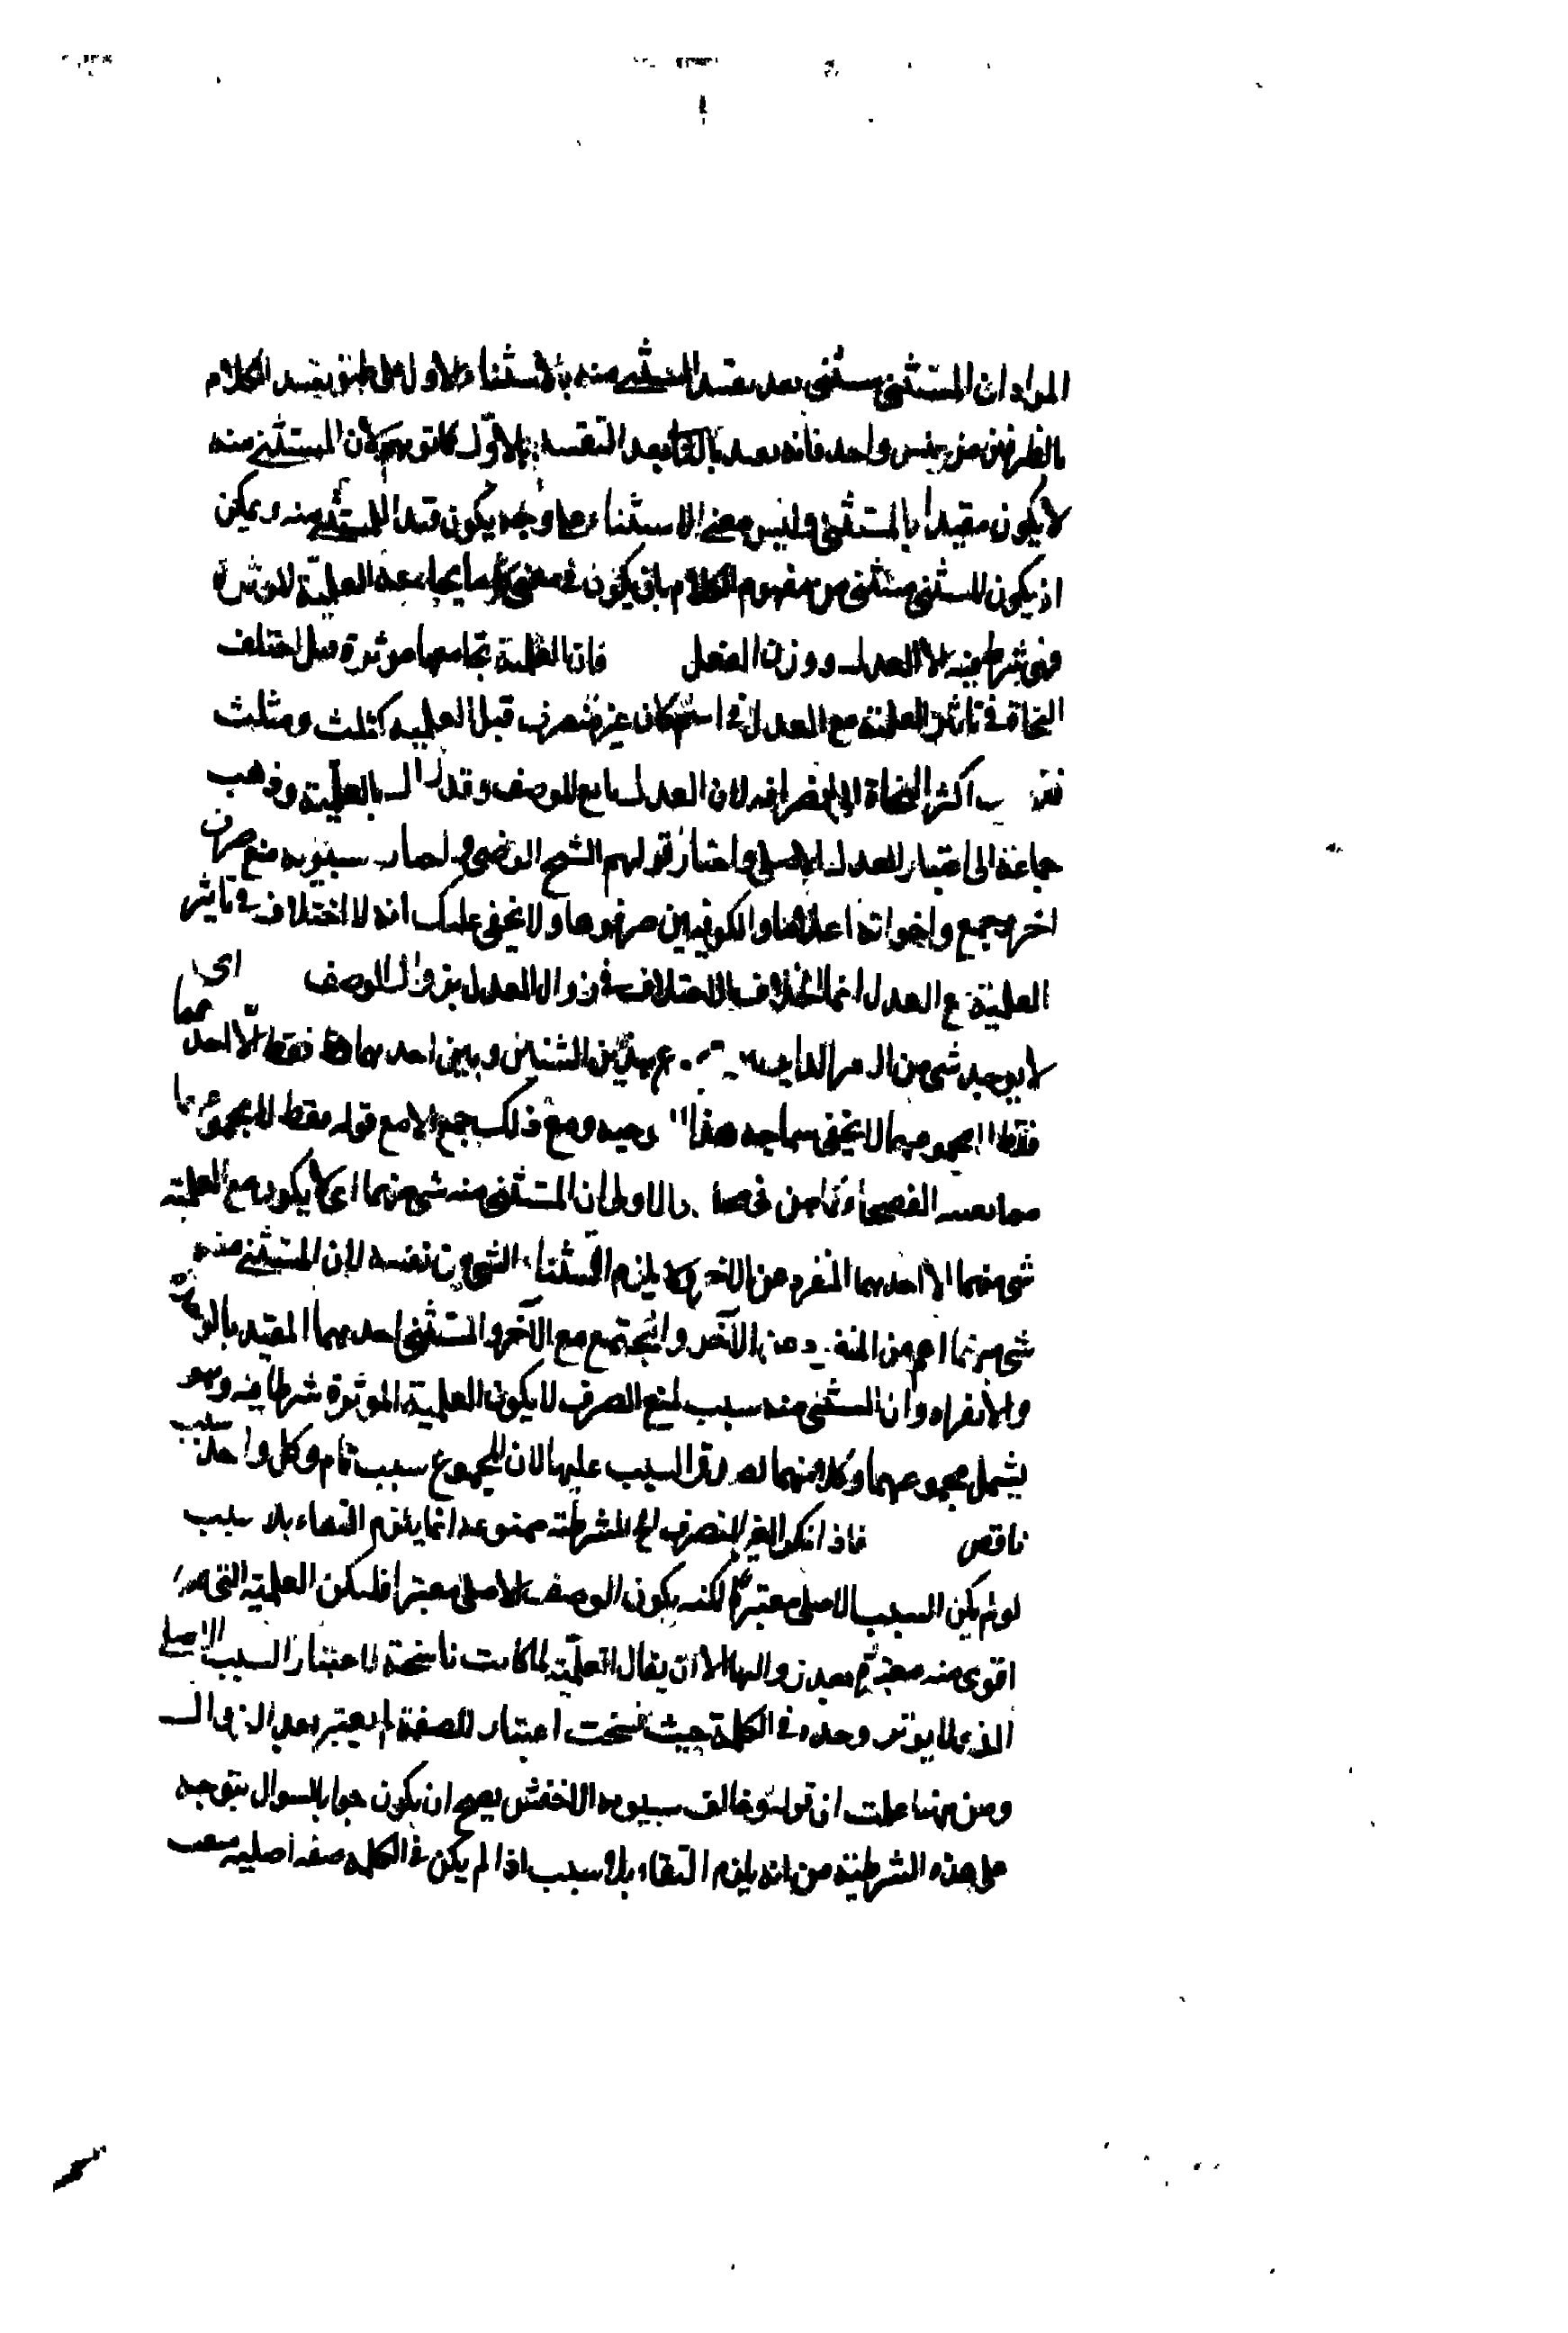 المراد ان المستثنى مستثنى بعد تقييد المستثنى منه بالاستثناء الاول على طبق تقييد الكلام
بالظرفين من جنس واحد فانه يقيد بالثاني بعد التقييد بالاول كما توهم لان المستثنى منه
لا يكون مقيدا بالمستثنى وليس معنى الاستثناء على وجه يكون قيد المستثنى منه ويمكن
ان يكون المستثنى مستثنى من مفهوم الكلام بان يكون في معنى كل ما يجامعه العلمية المؤثرة
فهي شرط فيه الا العدل ووزن الفعل فان العلمية تجامعها مؤثرة قيل اختلف
النحاة في تاثير العلمية مع العدل في اسم كان غير منصرف قبل العلمية كثلث ومثلث
اكثر النحاة الى انصرافه لان العدل تابع للوصف وقد زال بالعلمية وذهب
جماعة الى اعتبار العدل الاصلي واختار قولهم الشيخ الرضي سيبويه منع صرف
اخر وجمع واخواته اعلاما والكوفيين صرفوها ولا يخفى عليك انه لا اختلاف في تاثير
العلمية مع العدل انما الخلاف والاختلاف في زوال العدل بزوال الوصف اى
لا يوجد شيء من الامر الداير بين الشيئين وبين احدهما فقط الا احد
فقط لا مجموعهما لا يخفى سماجة هذا ومع ذلك جمع الا مع قوله فقط لا مجموعهما
الفصحاء فالاولى ان المستثنى منه شيء منهما اى لا يكون مع العلمية
شيء منهما الا احدهما المنفرد عن الاخر ولا يلزم استثناء الشيء من نفسه لان المستثنى منه
شيء منهما اعم من المنفرد عن الآخر والمجتمع مع الآخر والمستثنى احدهما المقيد
والانفراد وان المستثنى منه سبب لمنع الصرف لا يكون العلمية المؤثرة شرطا فيه وهو
يشمل مجموعهما وكلا منهما لصدق السبب عليها لان المجموع سبب تام وكل واحد سبب
ناقص فاذا نكر الغير المنصرف الخ الشرطية ممنوعة انما يلزم البقاء بلا سبب
لو لم يكن السبب الاصلي معتبرا لكنه يكون الوصف الاصلي معتبرا فليكن العلمية التي
اقوى منه معتبرة بعد زوالها الا ان يقال العلمية لما كانت ناسخة لاعتبار السبب الاصلي
الذي لا يؤثر وحده في الكلمة حيث نسخت اعتبار الصفة لم يعتبر بعد الزوال
ومن ههنا علمت ان قوله وخالف سيبويه الاخفش يصح ان يكون جوابا لسوال يتوجه
على هذه الشرطية من انه يلزم البقاء بلا سبب اذا لم يكن في الكلمة صفة اصلية